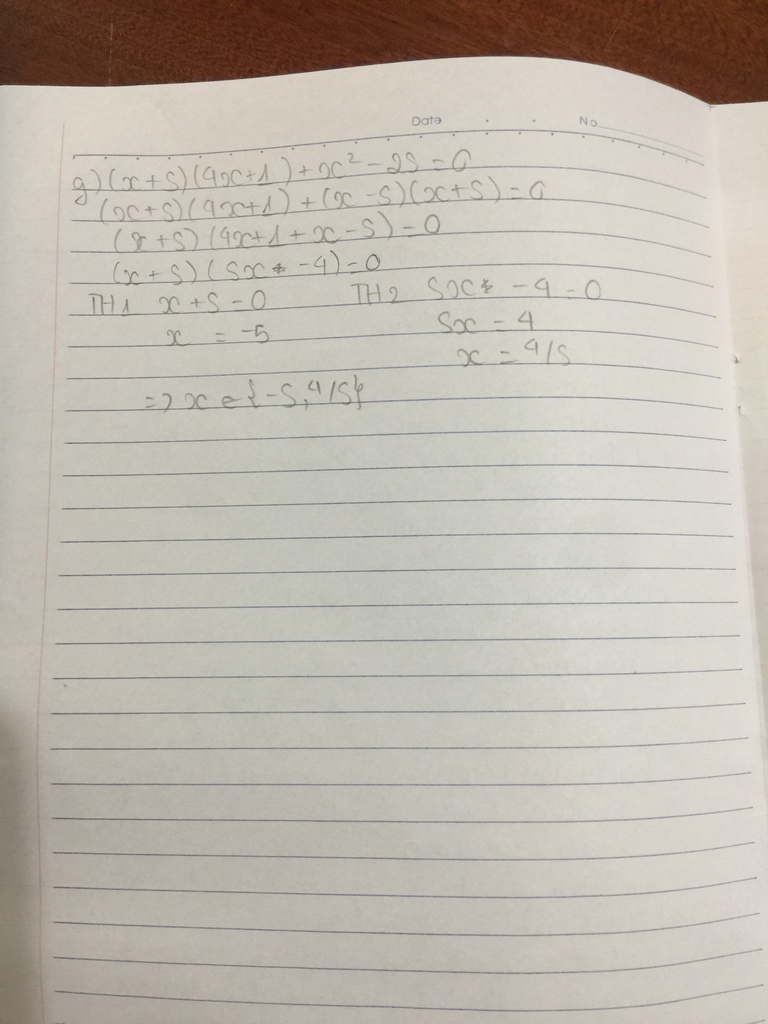 Date No
g) (x+5)(4x+1)+x² - 25 = 0
(x+5)(4x+1) + (x-5)(x+5) = 0
(x+5)(4x+1+x-5) = 0
(x+5)(5x -4) = 0
TH1 x+5=0 TH2 5x -4=0
x = -5 5x = 4
x = 4/5
=> x ∈ {-5, 4/5}